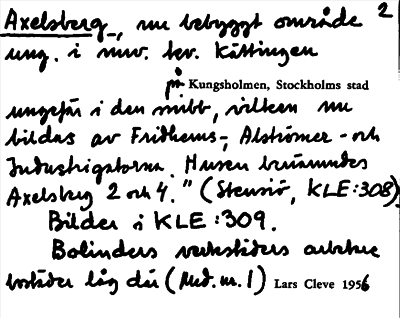 Axelsberg, nu bebyggt område 2
ung. i nuv. kv. Kättingen
på Kungsholmen, Stockholms stad
ungefär i den mitt, vilken nu
bildas av Fridhems-, Alströmer- och
Industrigatorna. Husen benämndes
Axelsberg 2 och 4." (Stensiö, KLE:308)
Bilder i KLE:309.
Bolinders verkstäders arbetare
bostäder låg där (Med. nr. 1) Lars Cleve 1956